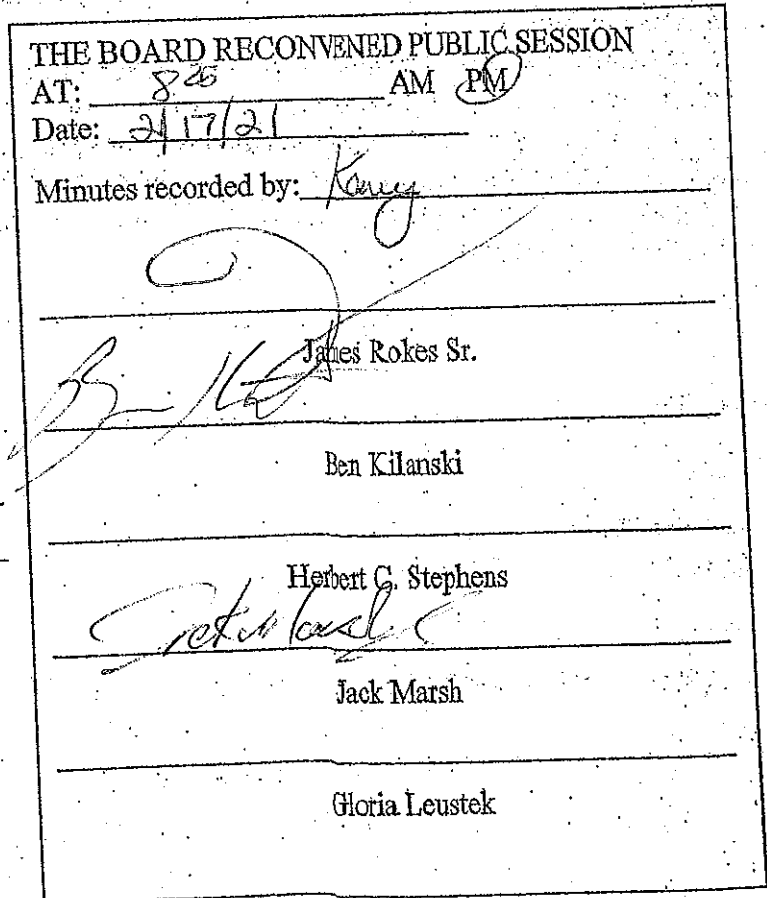 THE BOARD RECONVENED PUBLIC SESSION
AT: 8 AM PM
Date: 2/17/21
Minutes recorded by:
James Rokes Sr.
Ben Kilanski
Herbert G. Stephens
Jack Marsh
Jack Marsh
Gloria Leustek